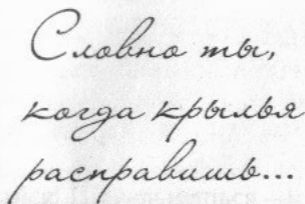 Словно ты,
когда крылья
расправишь...